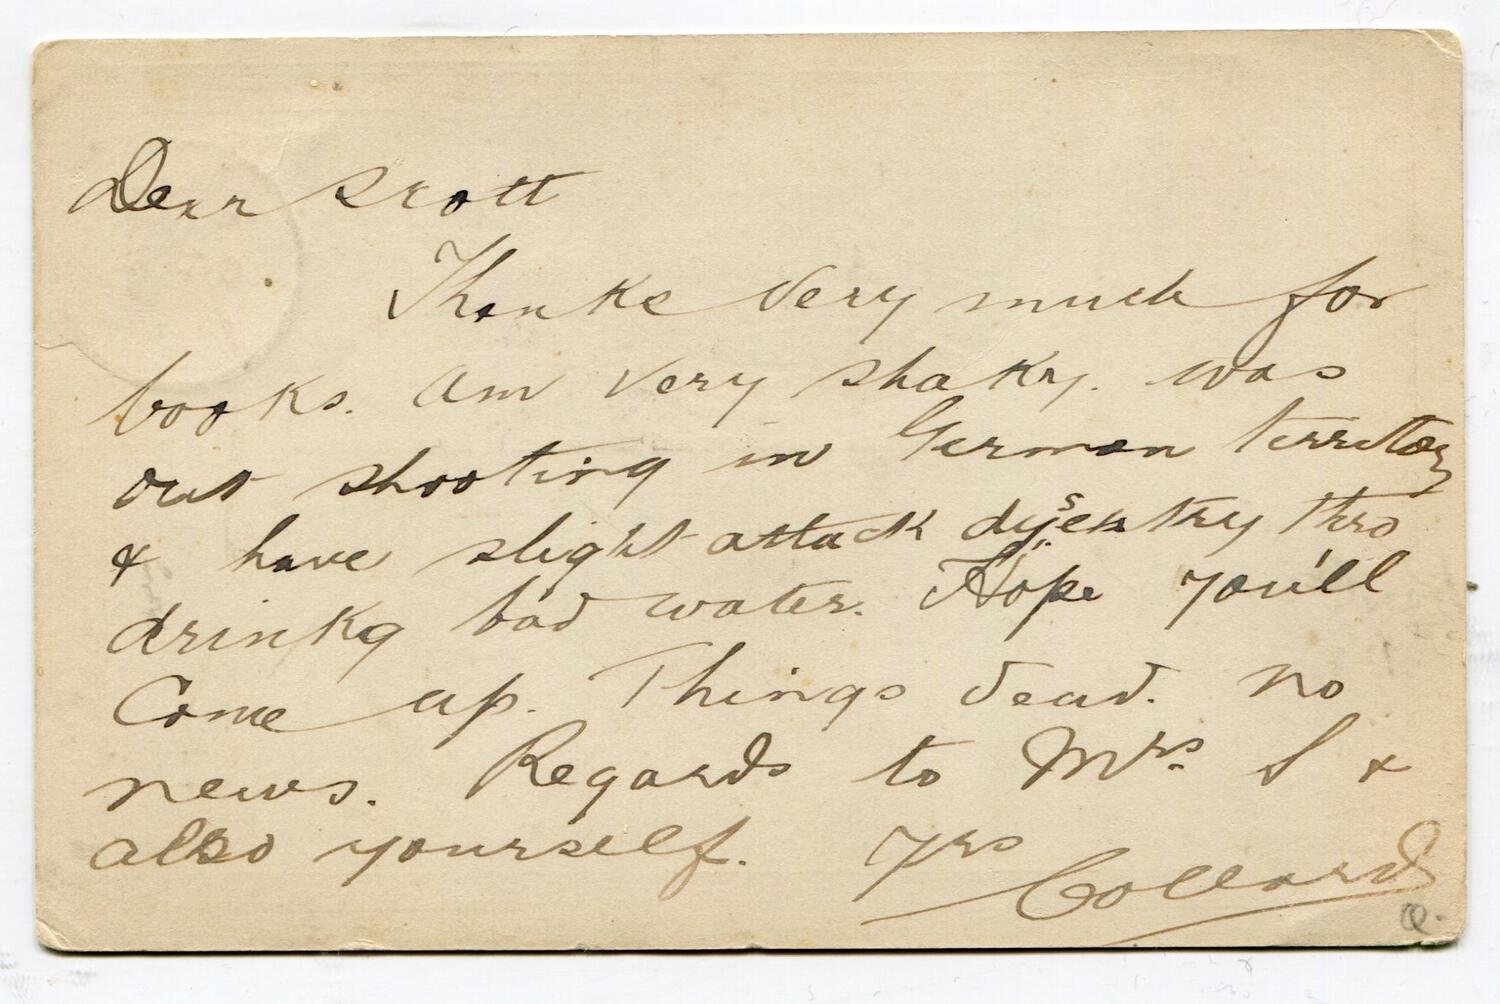 Dear Scott
Thanks very much for
books. Am very shaky. was
out shooting in German territory
& have slight attack dysentry thro
drinkg bad water. Hope you'll
Come up. Things dead. no
news. Regards to Mrs S &
also yourself. Yrs
Collard
Q.